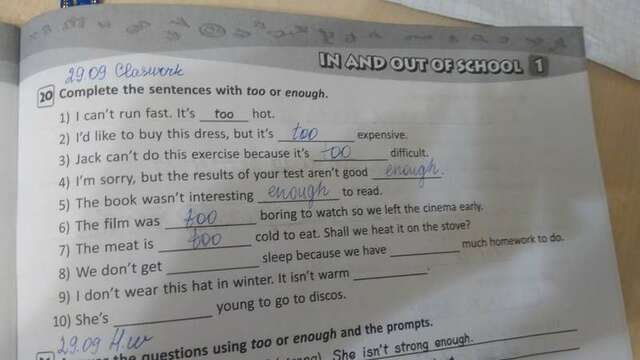 IN AND OUT OF SCHOOL 1
29.09 Claswork
20 Complete the sentences with too or enough.
1) I can't run fast. It's too hot.
2) I'd like to buy this dress, but it's too expensive.
3) Jack can't do this exercise because it's too difficult.
4) I'm sorry, but the results of your test aren't good enough.
5) The book wasn't interesting enough to read.
6) The film was too boring to watch so we left the cinema early.
7) The meat is too cold to eat. Shall we heat it on the stove?
8) We don't get ________ sleep because we have ________ much homework to do.
9) I don't wear this hat in winter. It isn't warm ________.
10) She's ________ young to go to discos.
29.09 H.w
the questions using too or enough and the prompts.
She isn't strong enough.